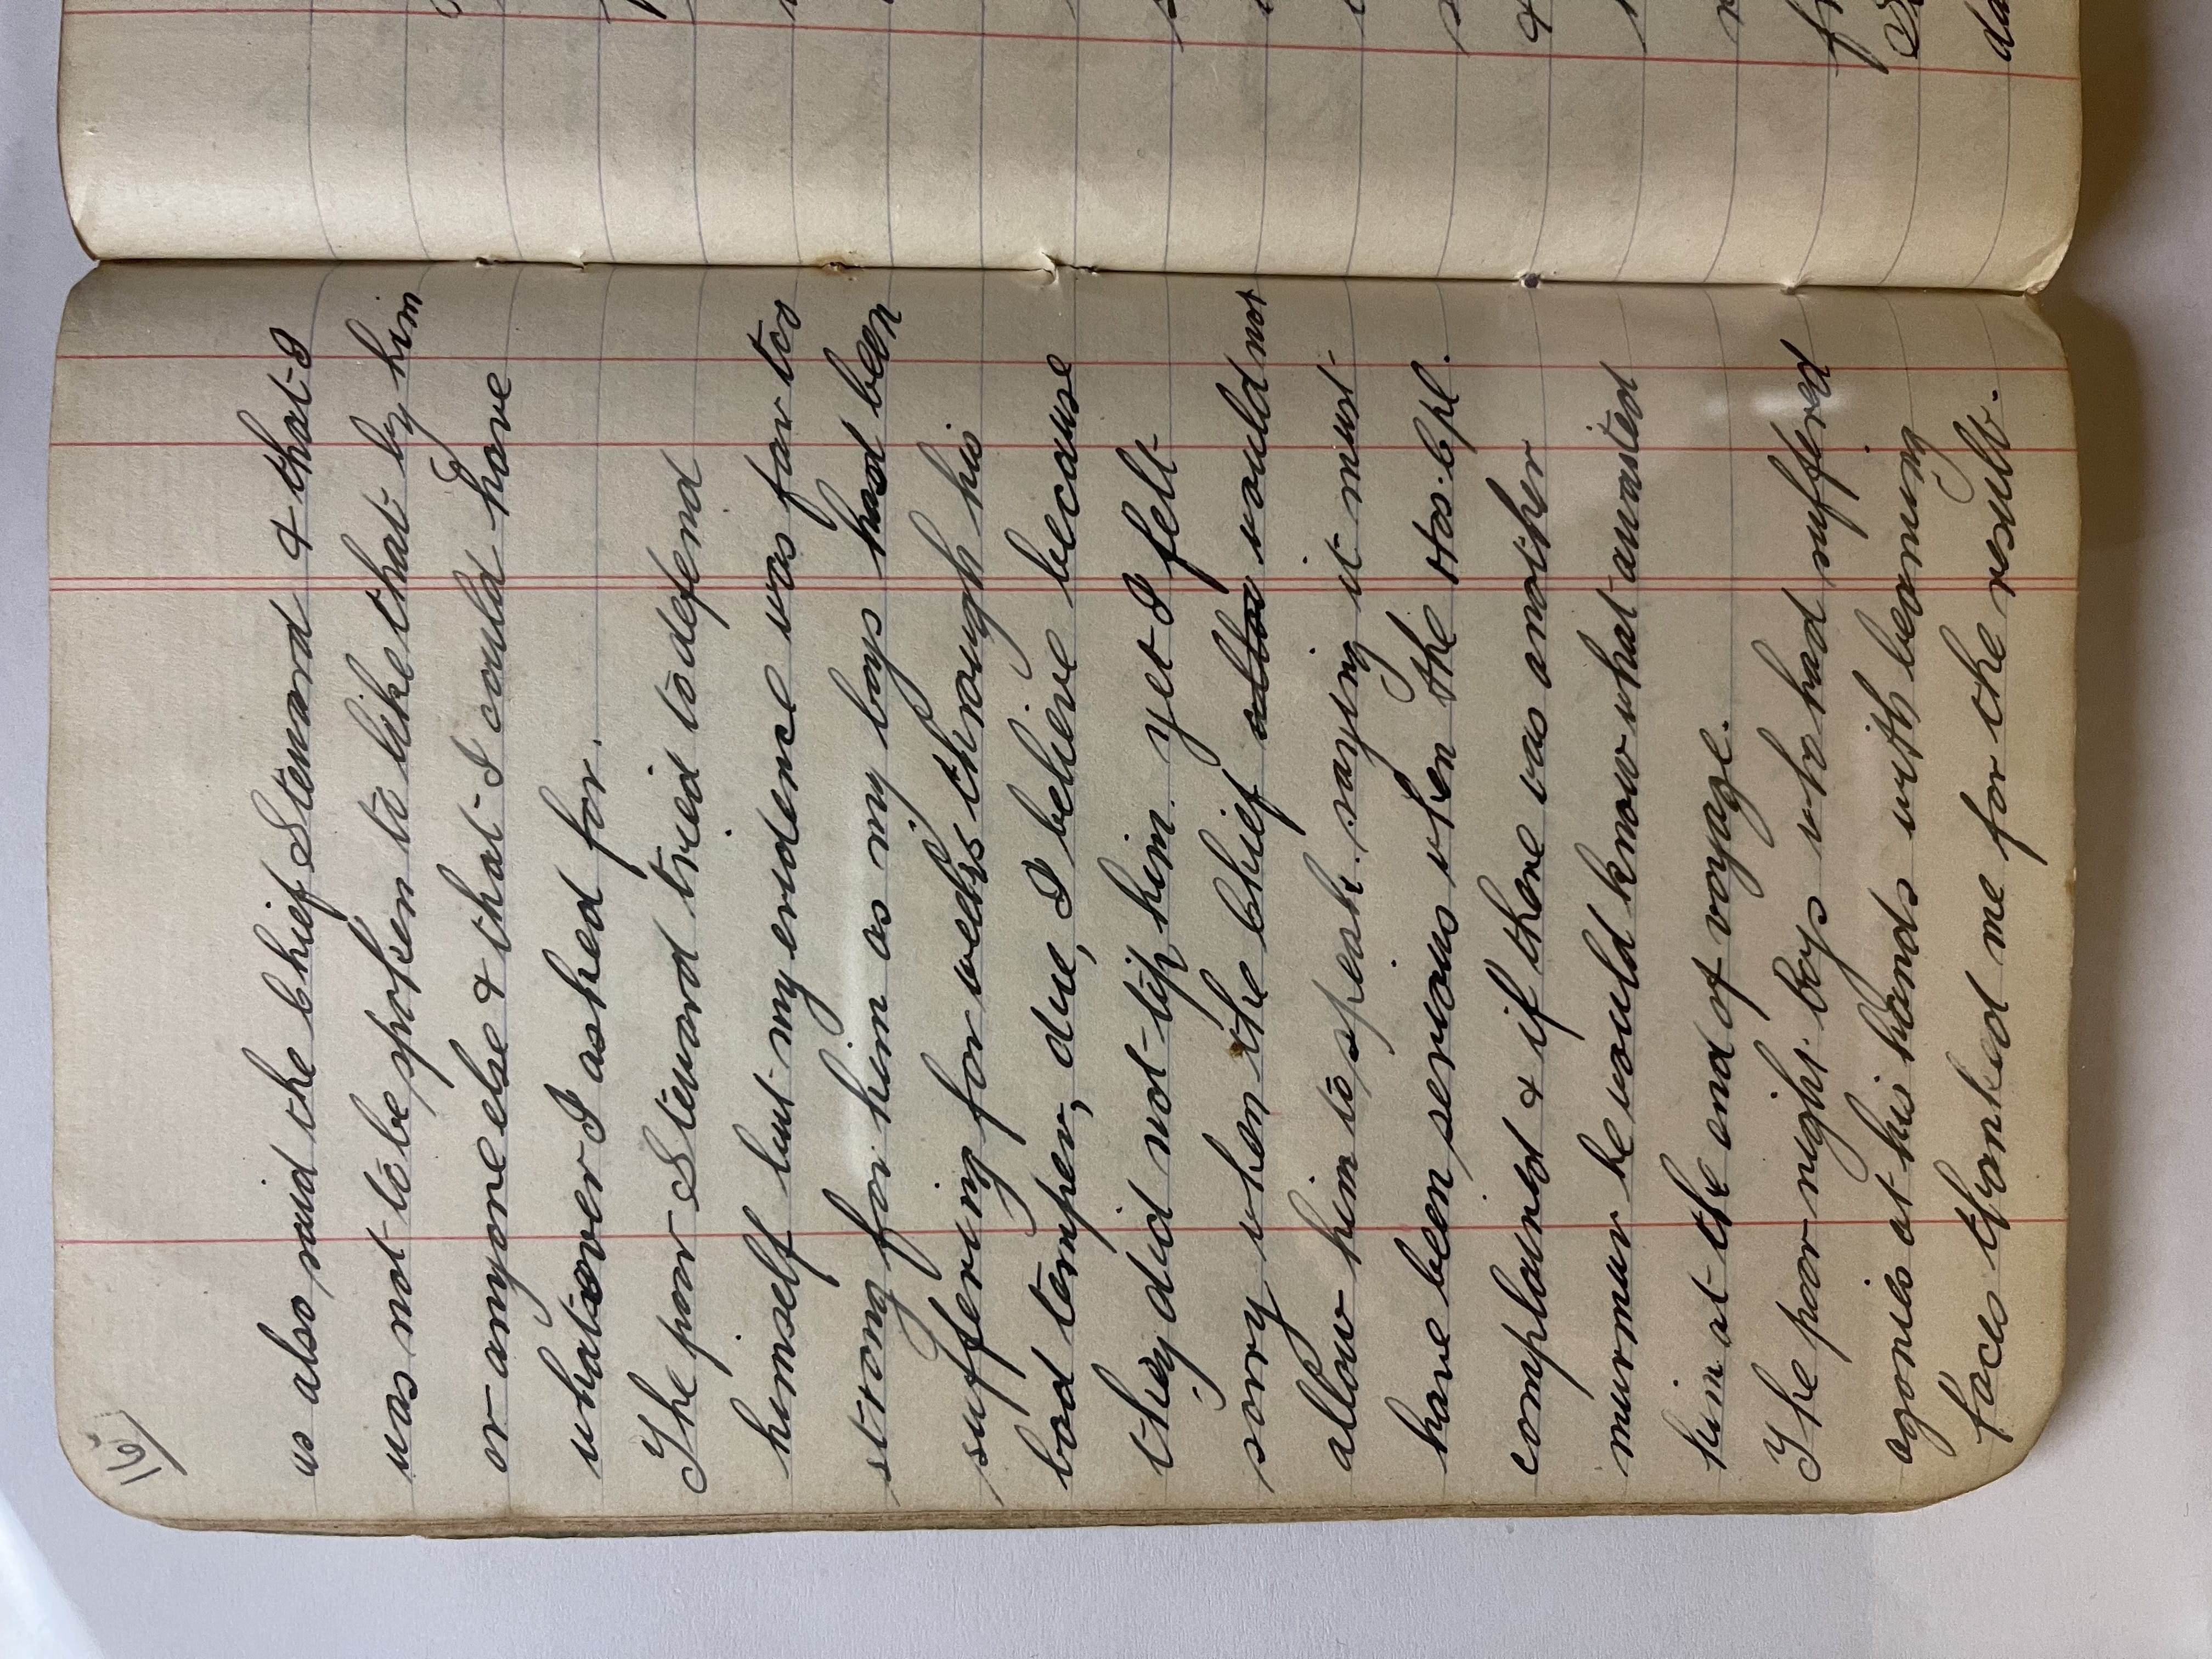 16
as also said the Chief Steward & that I
was not to be spoken to like that by him
or anyone else & that I could have
whatsoever I asked for.
The poor Steward tried to defend
himself but my evidence was far too
strong for him as my boys had been
suffering for weeks through his
bad temper, due, I believe because
they did not tip him. yet I felt
sorry when the Chief allow would not
allow him to speak. saying it must
have been serious when the Hos. Cpl.
complained & if there was another
murmur he would know what awaited
him at the end of voyage.
The poor night Boys who had suffered
agonies at his hands with beaming
faces thanked me for the result.